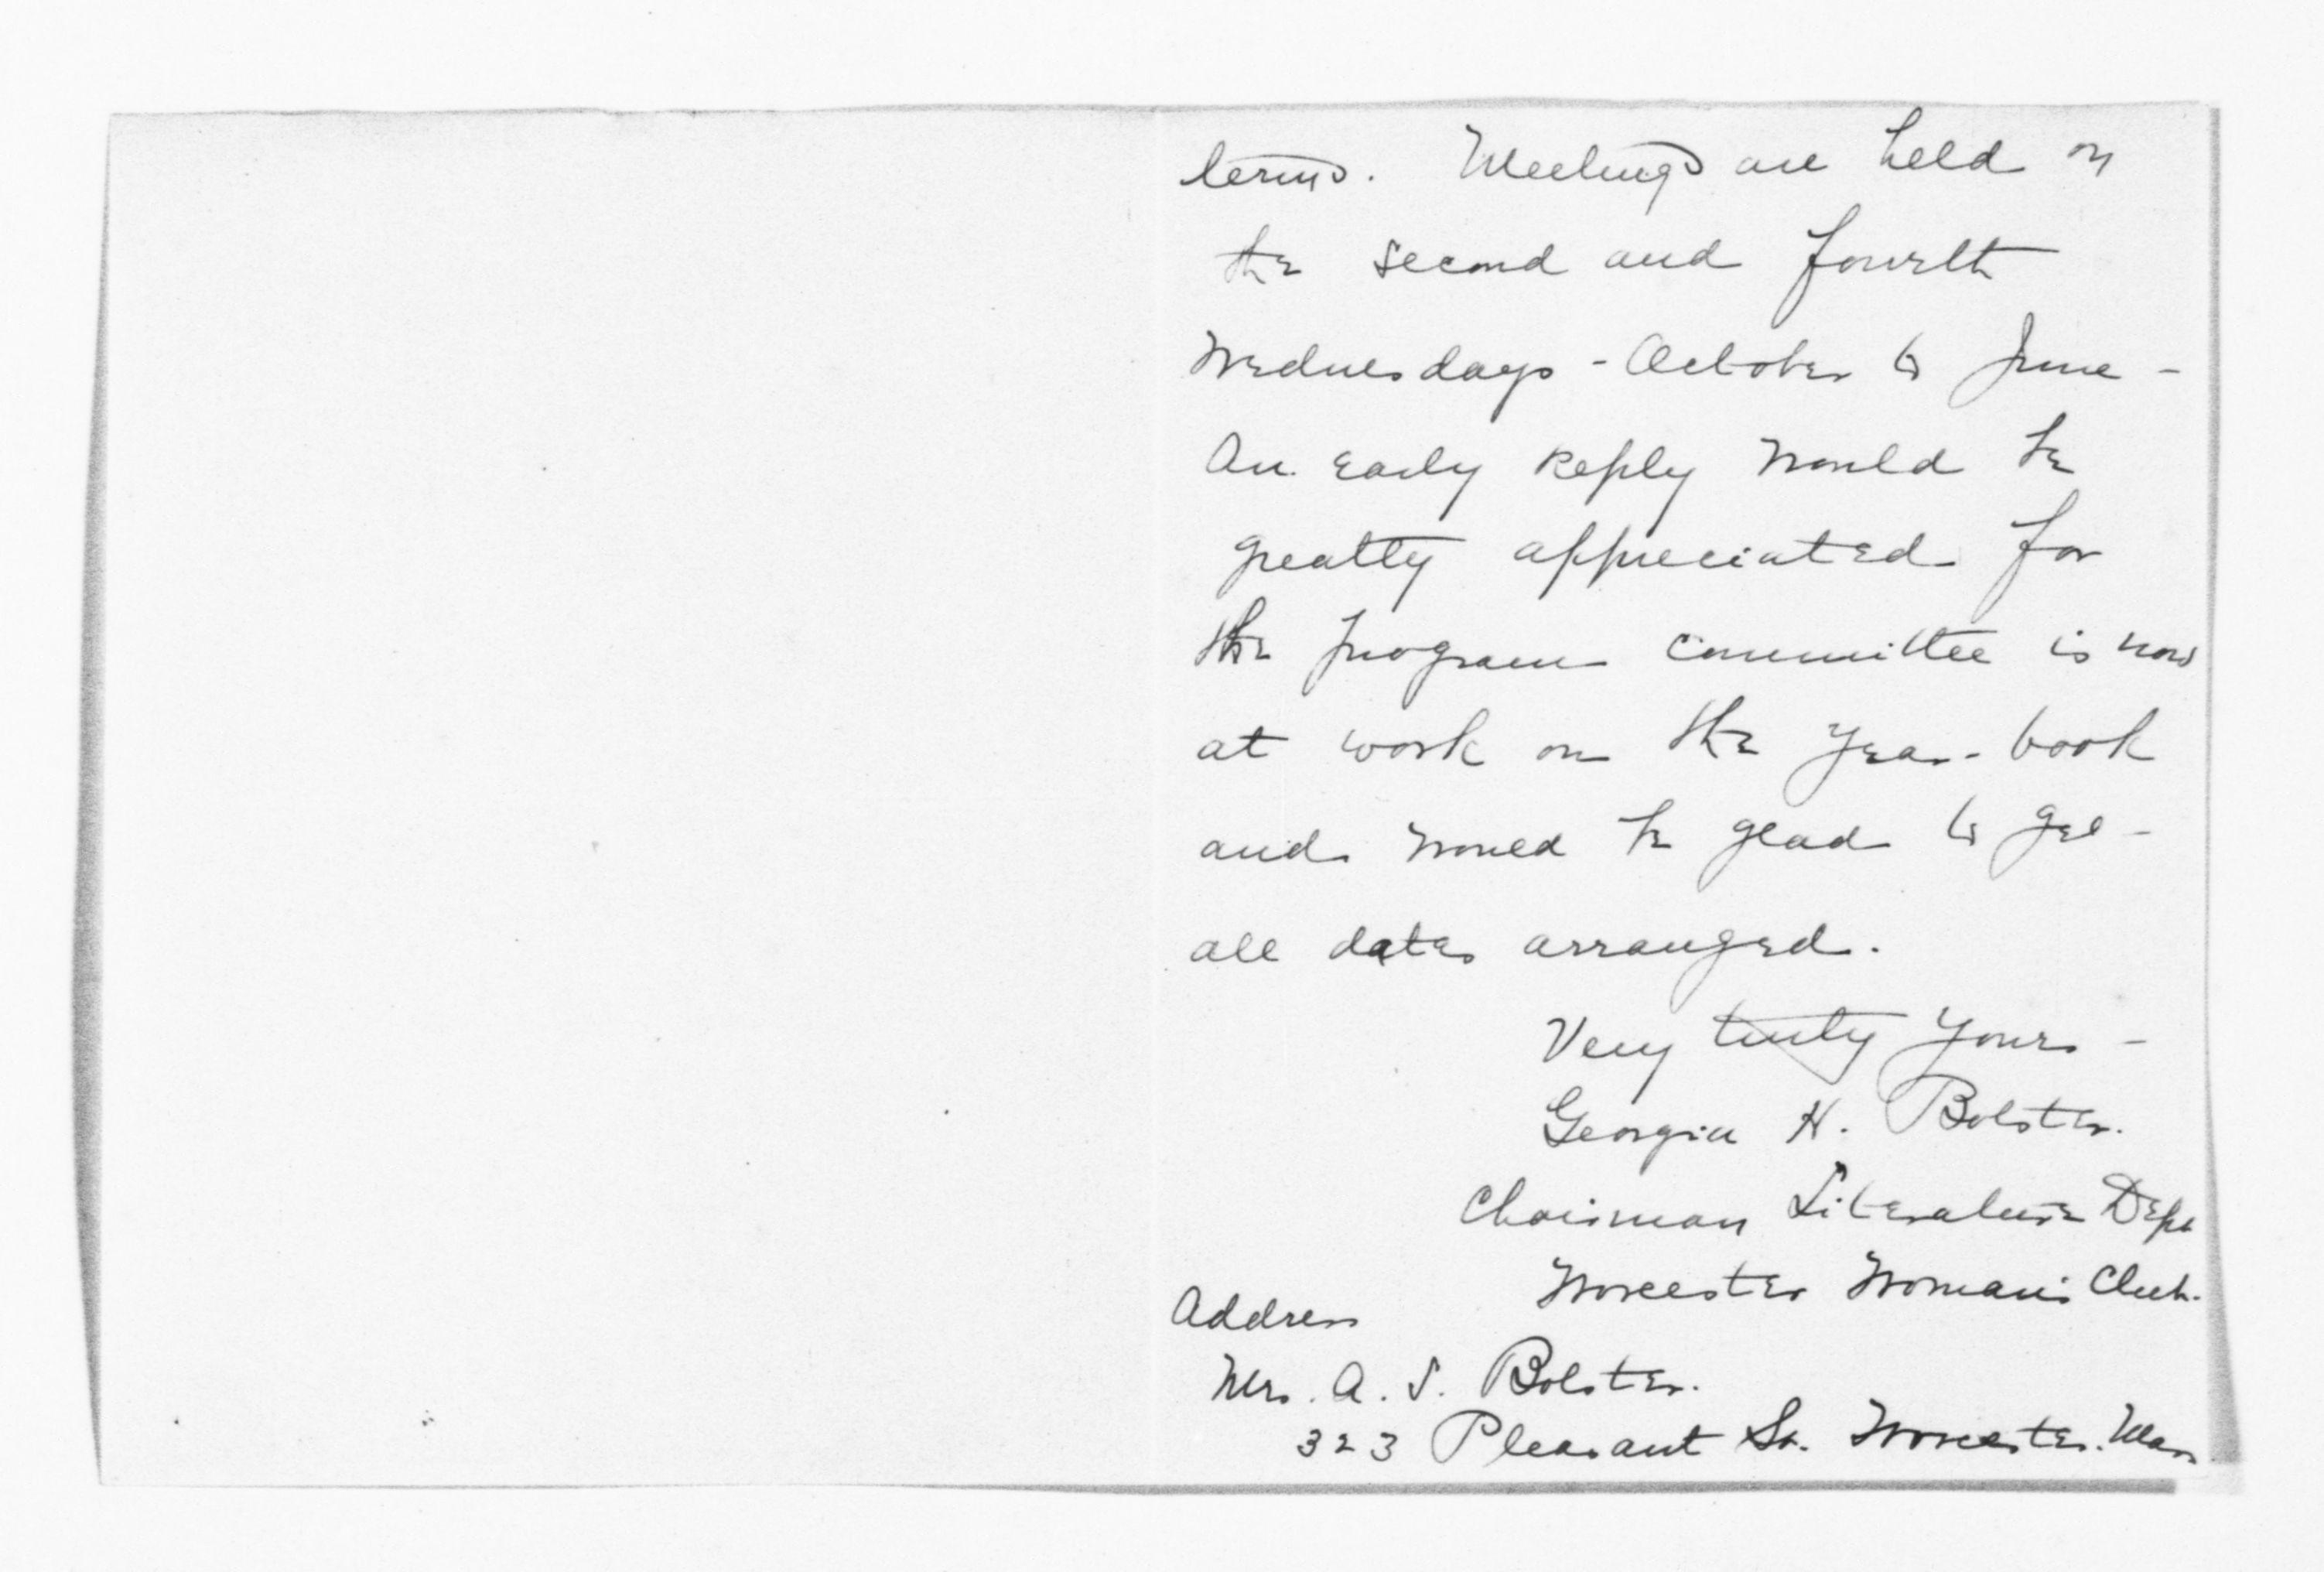 terms. Meetings are held on
the second and fourth
Wednesdays - October to June -
An early reply would be
greatly appreciated for
the program committee is now
at work on the year-book
and would be glad to get
all dates arranged.
Very truly yours -
Georgia H. Bolster.
Chairman Literature Dept
Worcester Woman's Club.
Address
Mrs. A. S. Bolster.
323 Pleasant St. Worcester. Mass